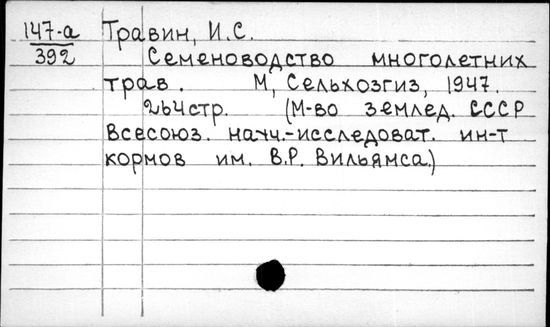 147-а Травин, И.С.
392 Семеноводство многолетних
трав. М, Сельхозгиз, 1947.
264стр. (М-во землед. СССР
Всесоюз. научн.-исследоват. ин-т
кормов им. В.Р. Вильямса.)